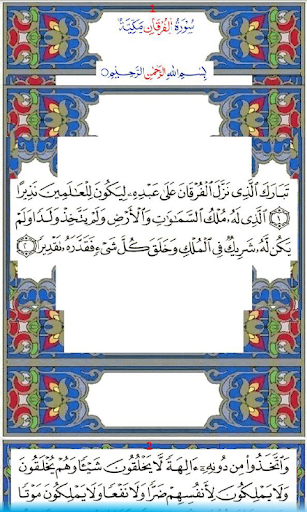 1
سُورَةُ الْفُرْقَانِ مَكِّيَّةٌ
بِسْمِ اللهِ الرَّحْمٰنِ الرَّحِيْمِ
تَبَارَكَ ٱلَّذِى نَزَّلَ ٱلْفُرْقَانَ عَلَىٰ عَبْدِهِۦ لِيَكُونَ لِلْعَـٰلَمِينَ نَذِيرًا
١ ٱلَّذِى لَهُۥ مُلْكُ ٱلسَّمَـٰوَٰتِ وَٱلْأَرْضِ وَلَمْ يَتَّخِذْ وَلَدًا وَلَمْ
يَكُن لَّهُۥ شَرِيكٌ فِى ٱلْمُلْكِ وَخَلَقَ كُلَّ شَىْءٍ فَقَدَّرَهُۥ نَقْدِيرًا ٢
2
وَٱتَّخَذُوا۟ مِن دُونِهِۦٓ ءَالِهَةً لَّا يَخْلُقُونَ شَيْـًٔا وَهُمْ يُخْلَقُونَ
وَلَا يَمْلِكُونَ لِأَنفُسِهِمْ ضَرًّا وَلَا نَفْعًا وَلَا يَمْلِكُونَ مَوْتًا